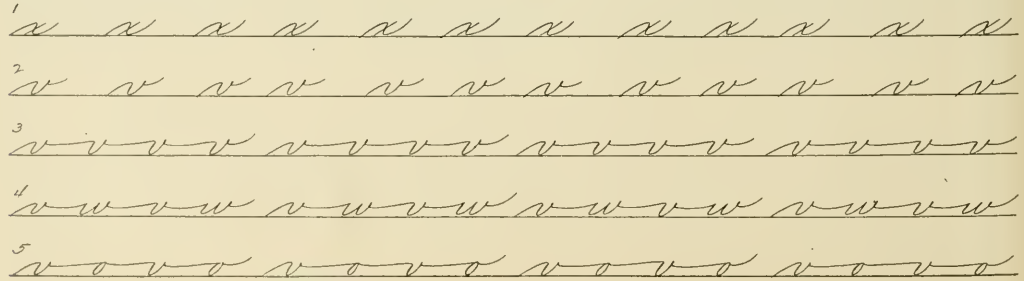 1 x x x x x x x x x x x x
2 v v v v v v v v v v v v
3 vvvv vvvv vvvv vvvv
4 vwvw vwvw vwvw vwvw
5 vovo vovo vovo vovo